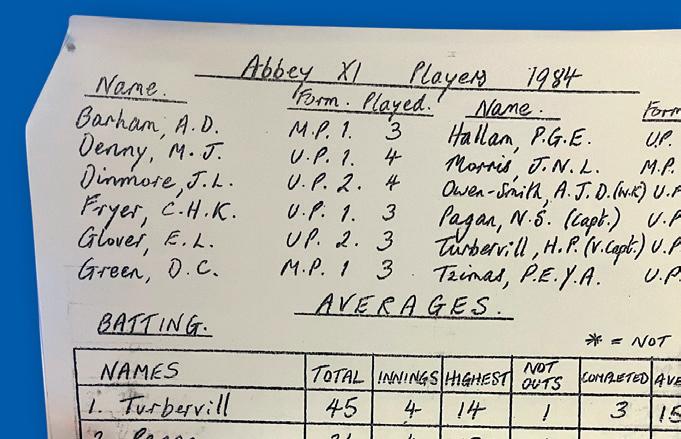 Abbey XI Players 1984
Name. Form. Played. Name. Form
Barham, A.D. M.P. 1. 3 Hallam, P.G.E. U.P.
Denny, M.J. U.P. 1. 4 Morris, J.N.L. M.P.
Dinmore, J.L. U.P. 2. 4 Owen-Smith, A.J.D. (W.K) U.P
Fryer, C.H.K. U.P. 1. 3 Pagan, N.S. (Capt.) U.P
Glover, E.L. UP. 2. 3 Turbervill, H.P. (V.Capt.) U.P.
Green, D.C. M.P. 1 3 Tzimas, P.E.Y.A. U.P.
AVERAGES.
BATTING.
* = NOT
NAMES TOTAL INNINGS HIGHEST NOT OUTS COMPLETED AVE
1. Turbervill 45 4 14 1 3 15